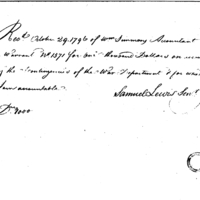 Recd. October 29. 1796 of Wm Simmons Accountant
Warrant No 1371 for one thousand Dollars on
of the Contingencies of the War Department & for which
accountable.
Samuel Lewis Senr
D. 1000